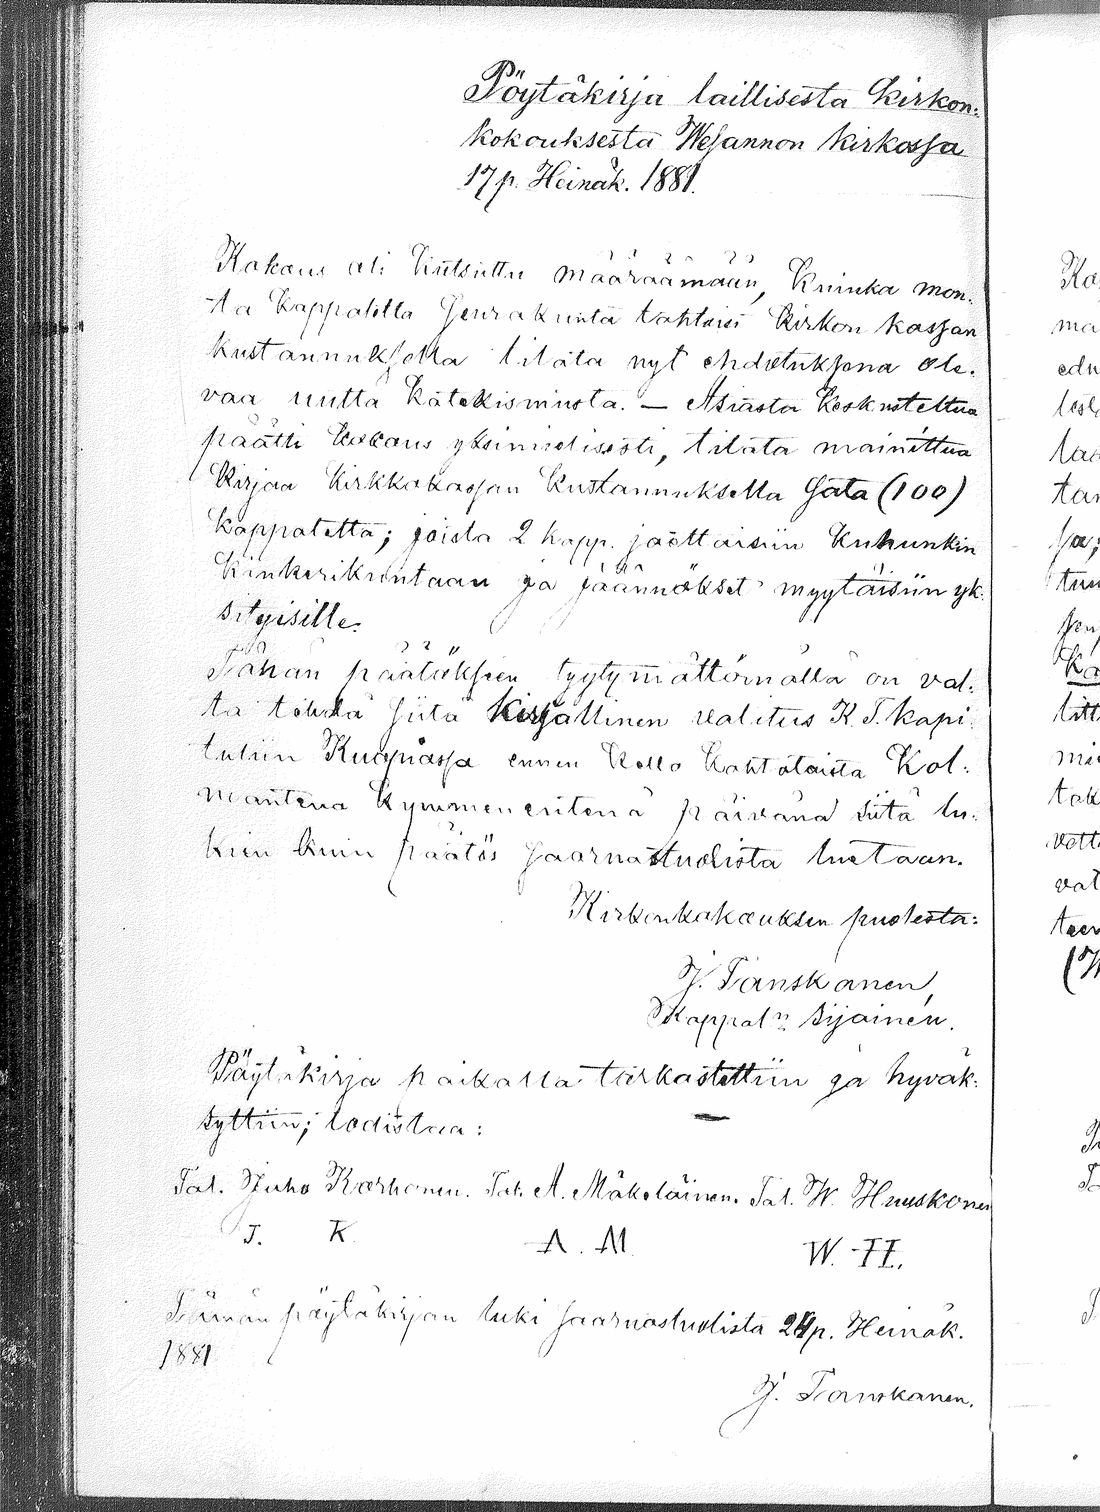 Pöytäkirja laillisesta Kirkon:
kokouksesta Wesannon kirkossa
17 p. Heinäk. 1881.
Kokous oli kutsuttu määräämään, kuinka mon:
ta kappaletta seurakunta tahtoisi kirkon kassan
kustannuksella tilata nyt ehdotuksena ole:
vaa uutta Katekismusta. — Asiasta keskusteltua
päätti kokous yksimielisesti, tilata mainittua
kirjaa kirkkokassan kustannuksella sata (100)
kappaletta; joista 2 kapp. jaettaisiin kuhunkin
kinkerikuntaan ja jäännökset myytäisiin yk:
sityisille.
Tähän päätökseen tyytymättömällä on val:
ta tehdä siitä kirjallinen valitus K. T. kapi:
tuliin Kuopiossa ennen kello kahtatoista Kol:
mantena kymmenentenä päivänä siitä lu:
kien kuin päätös saarnastuolista luetaan.
Kirkonkokouksen puolesta:
J. Tanskanen,
Kappal:n sijainen.
Pöytäkirja paikalla tarkastettiin ja hyväk:
syttiin; todistaa:
Tal. Juho Korhonen. Tal. A. Mäkeläinen. Tal. W. Huuskonen
J. K. A. M. W. H.
Tämän pöytäkirjan luki saarnastuolista 24 p. Heinäk.
1881
J. Tanskanen.
Ko
ma
edu
lest
laa
tan
sa;
tuu
sen
Ka
litt
mi
tak
vott
vat
teen
(W